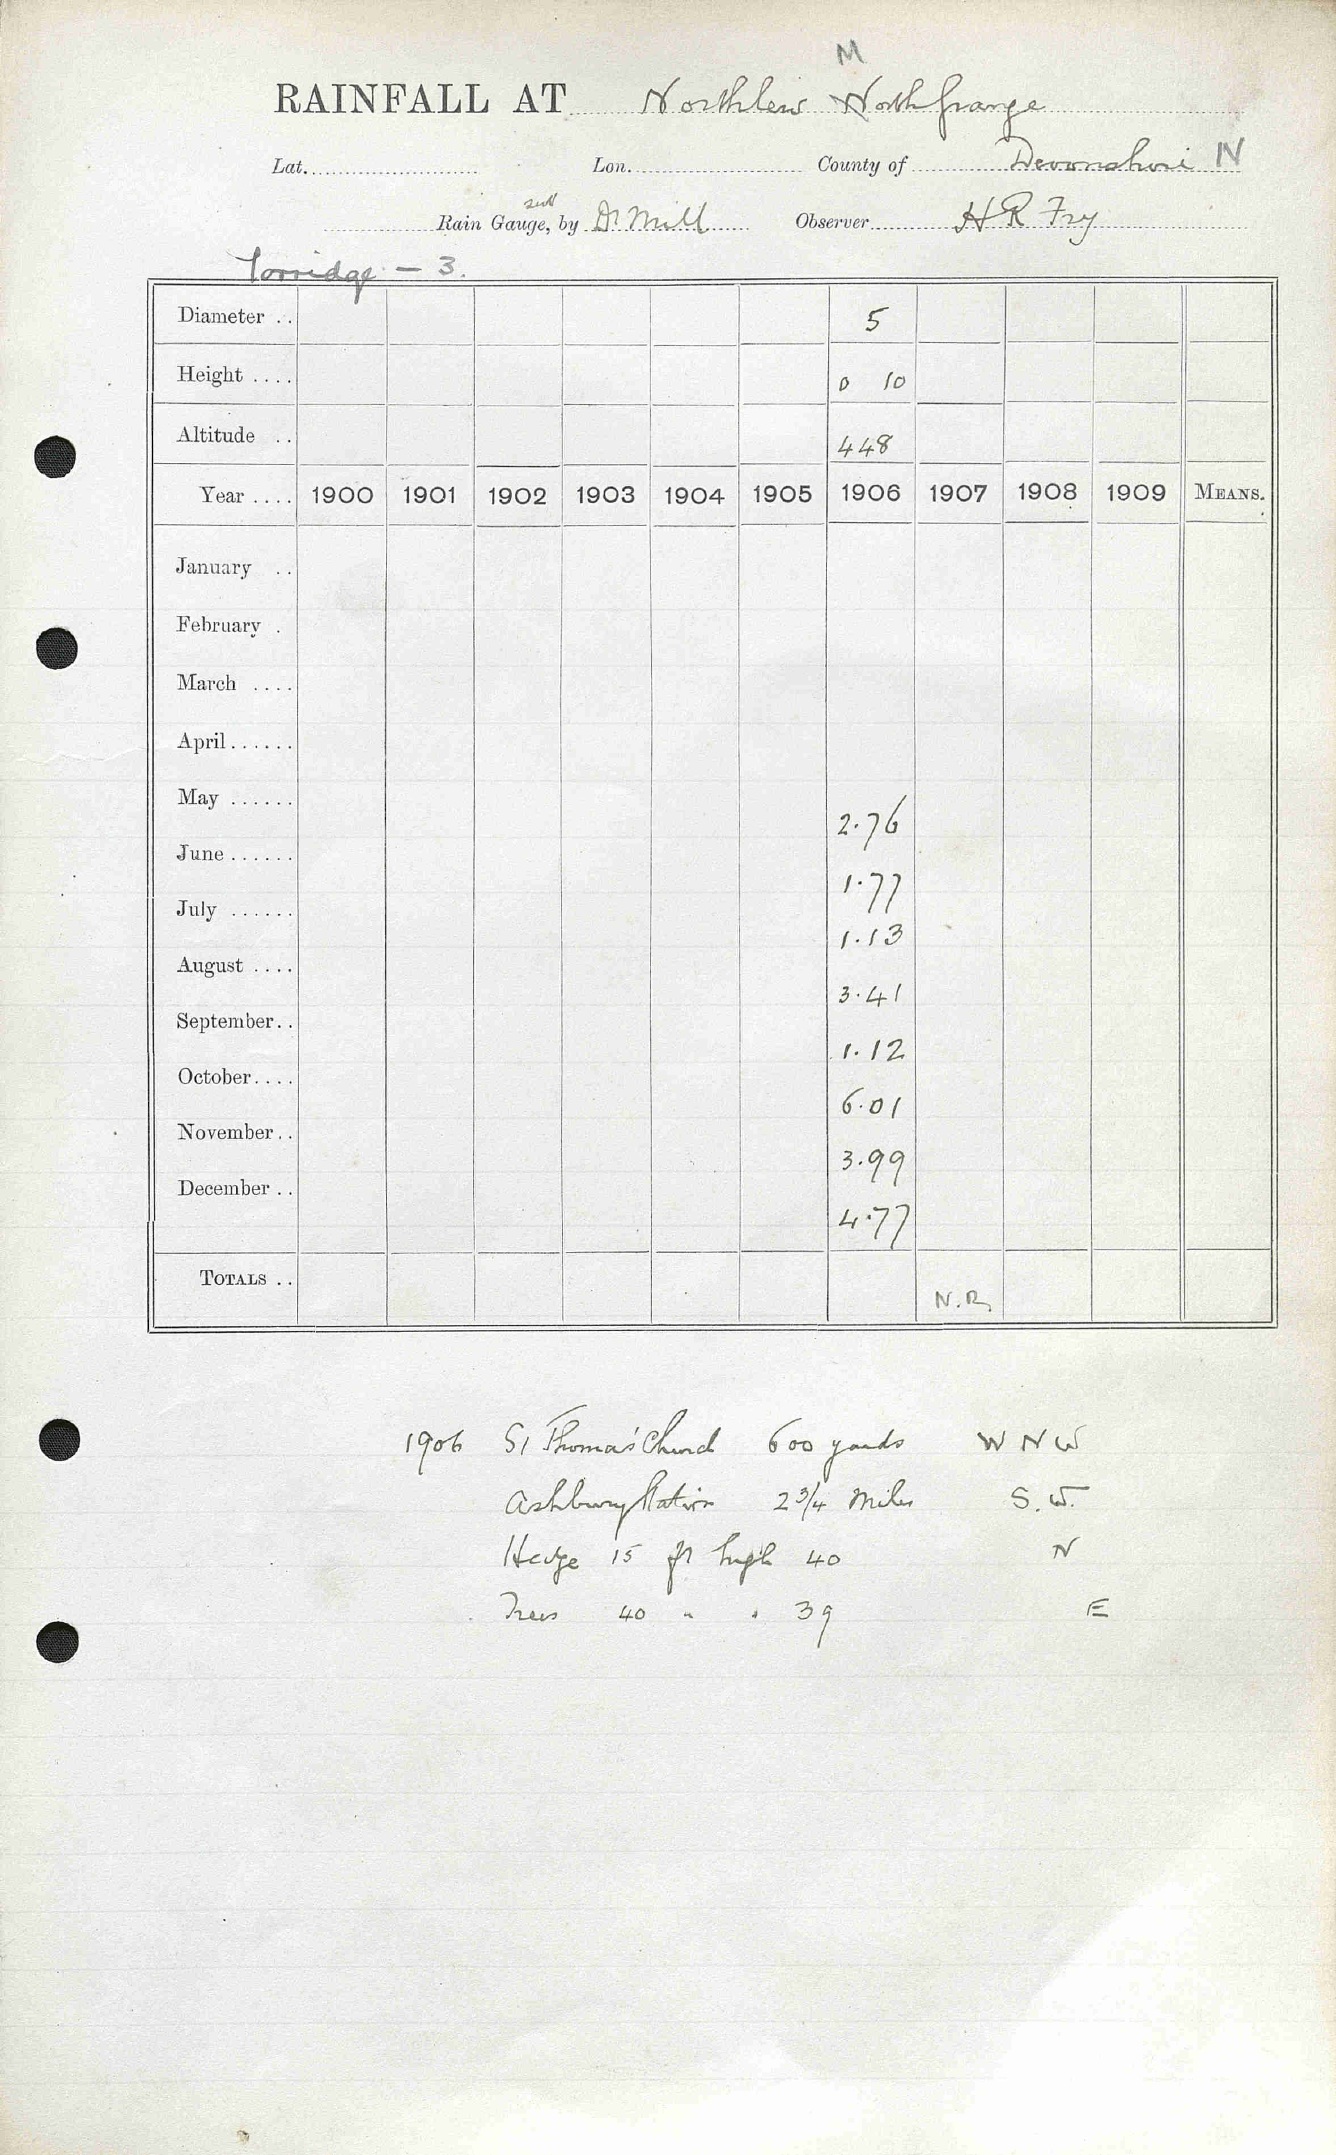 M
RAINFALL AT Northlew North Grange
Lat. Lon. County of Devonshire N
Rain Gauge, by Dr Mill Observer H R Fry
Torridge - 3.
Diameter .. 5
Height .... 0 10
Altitude .. 448
Year .... 1900 1901 1902 1903 1904 1905 1906 1907 1908 1909 MEANS.
January ..
February .
March ....
April ......
May ...... 2.76
June ...... 1.77
July ...... 1.13
August .... 3.41
September .. 1.12
October .... 6.01
November .. 3.99
December .. 4.77
TOTALS .. N.R.
1906 St Thomas' Church 600 yards W N W
Ashbury Station 2 3/4 Miles S.W.
Hedge 15 ft high 40 N
Trees 40 " " 39 E